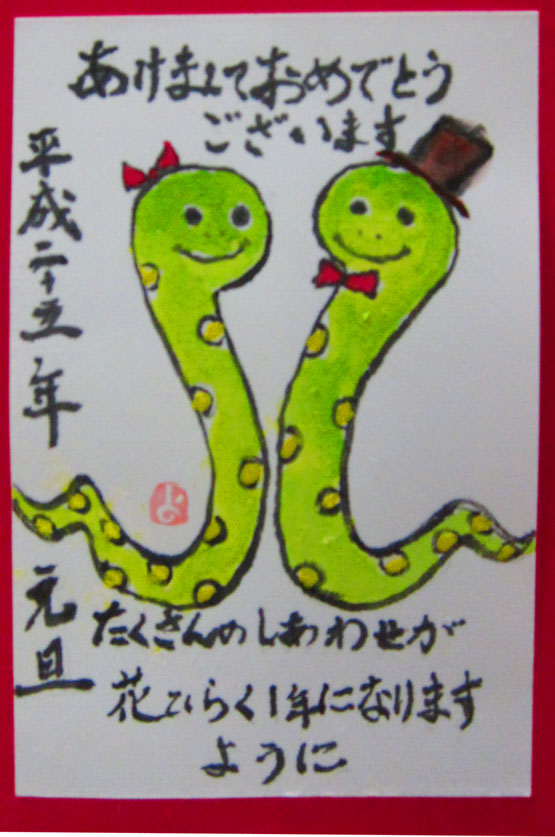 あけましておめでとう
ございます
平成二十五年
元旦
たくさんのしあわせが
花ひらく1年になります
ように
よ